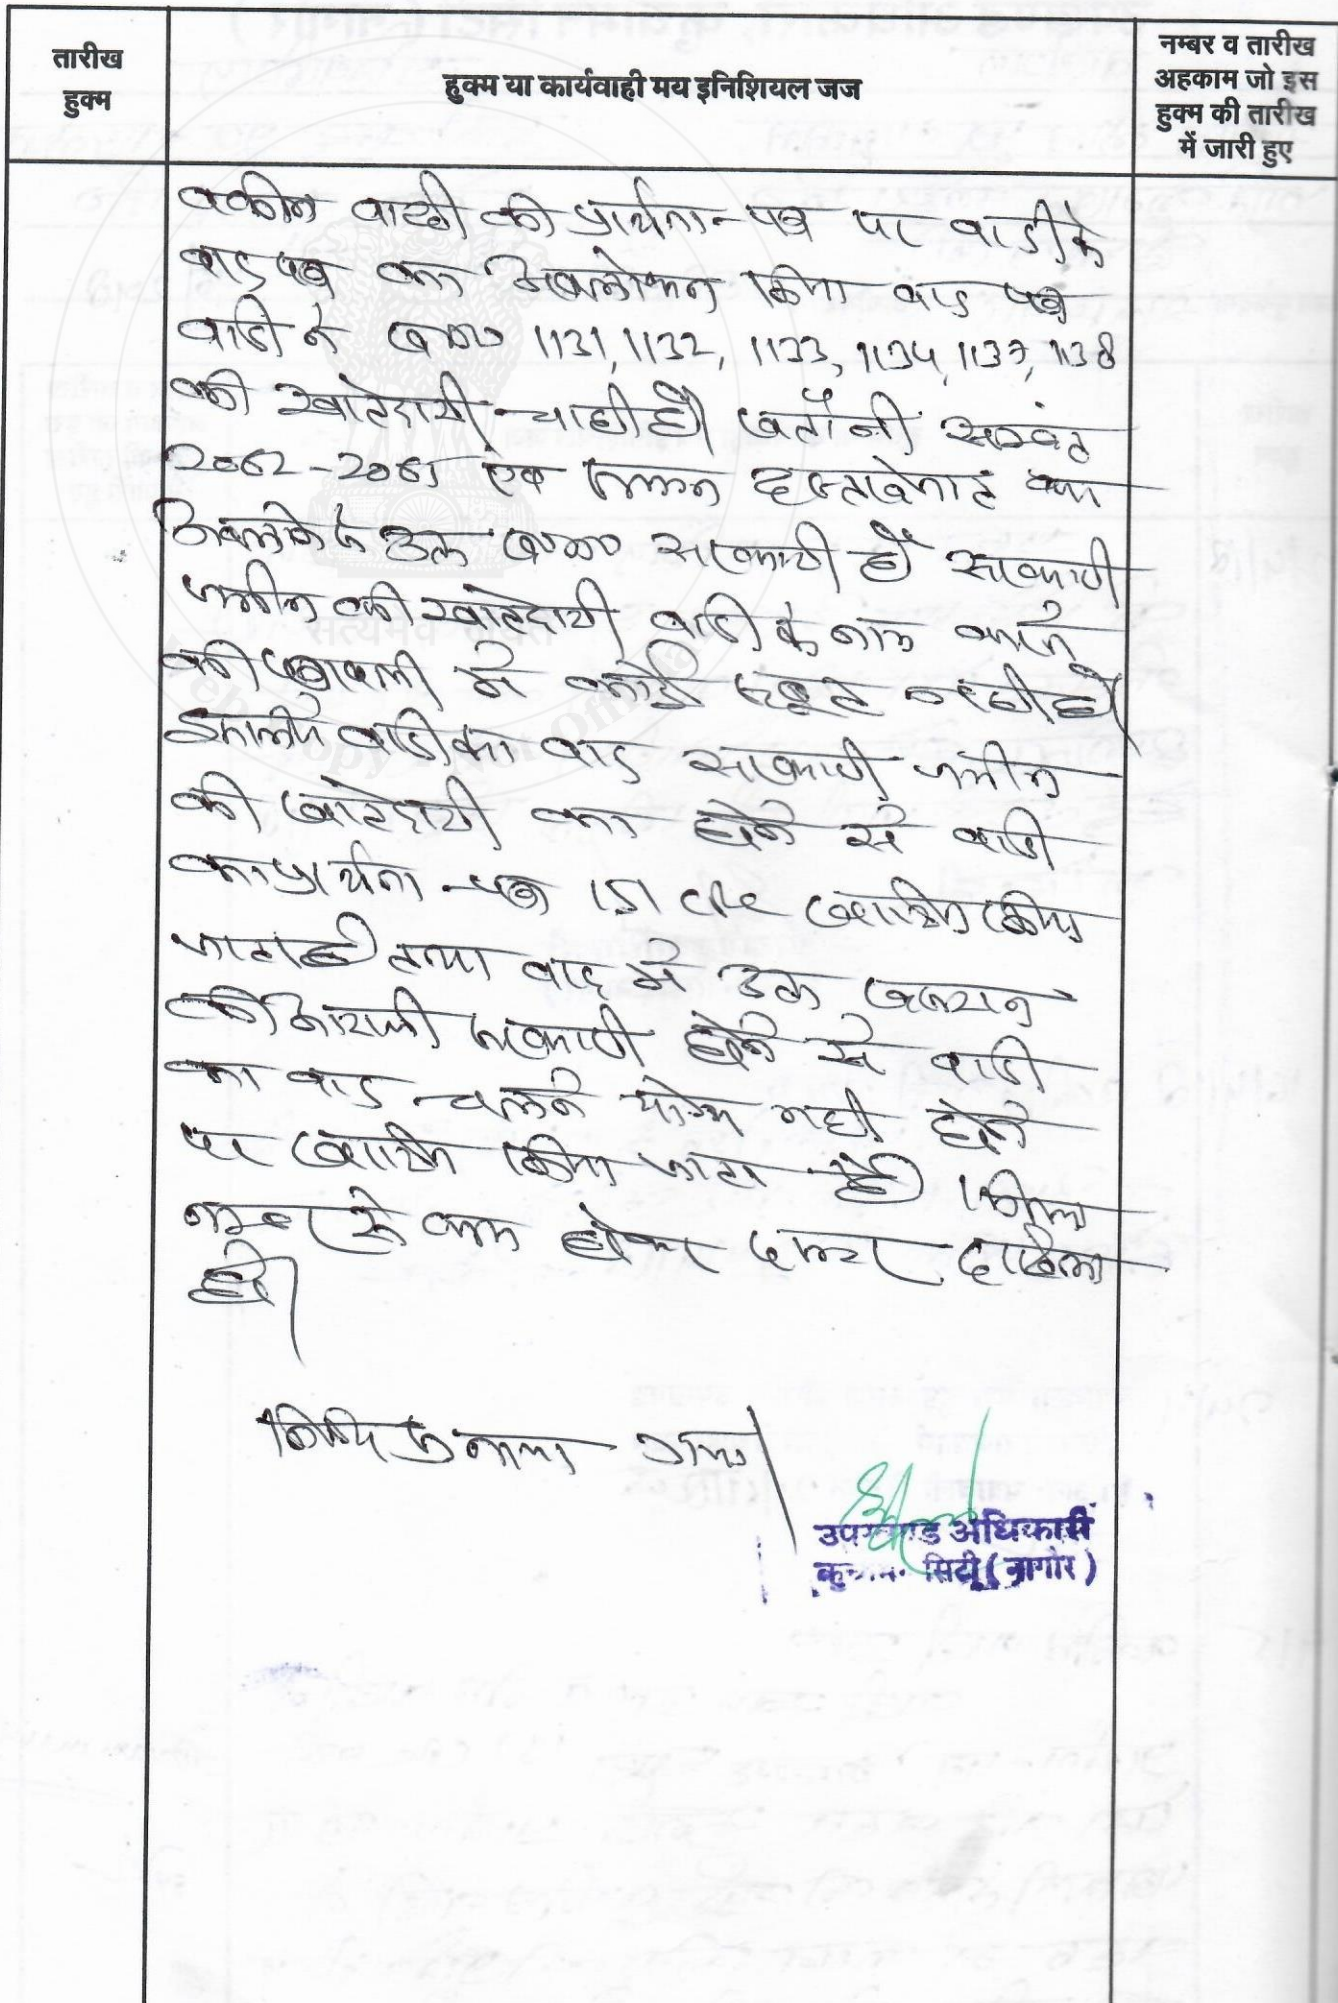 तारीख
हुक्म
हुक्म या कार्यवाही मय इनिशियल जज
नम्बर व तारीख
अहकाम जो इस
हुक्म की तारीख
में जारी हुए
वकील वादी की प्रार्थना-पत्र पर वादी के
वाद पत्र का अवलोकन किया वाद पत्र
वादी ने ख०न० 1131, 1132, 1133, 1134, 1137, 1138
की खातेदारी चाही है। खतौनी सम्वत
2062-2065 एवं दस्तावेजात का
अवलोकन उक्त ख०न० सरकारी है सरकारी
जमीन की खातेदारी वादी के नाम करने
की पत्रावली में कोई सबूत नही है।
इसलिए वादी का वाद सरकारी जमीन
की खातेदारी का होने से वादी
का प्रार्थना-पत्र 151 CPC खारिज किया
जाता है तथा वाद में उक्त खसरान
की आराजी सरकारी होने से वादी
का वाद चलने योग्य नही होने
पर खारिज किया जाता है।
नम्बर से कम होकर दफ्तर दाखिल
हो।
सुनाया गया।
उपखण्ड अधिकारी
सिटी (नागौर)
सत्यमेव जयते
Web Copy - Not Official